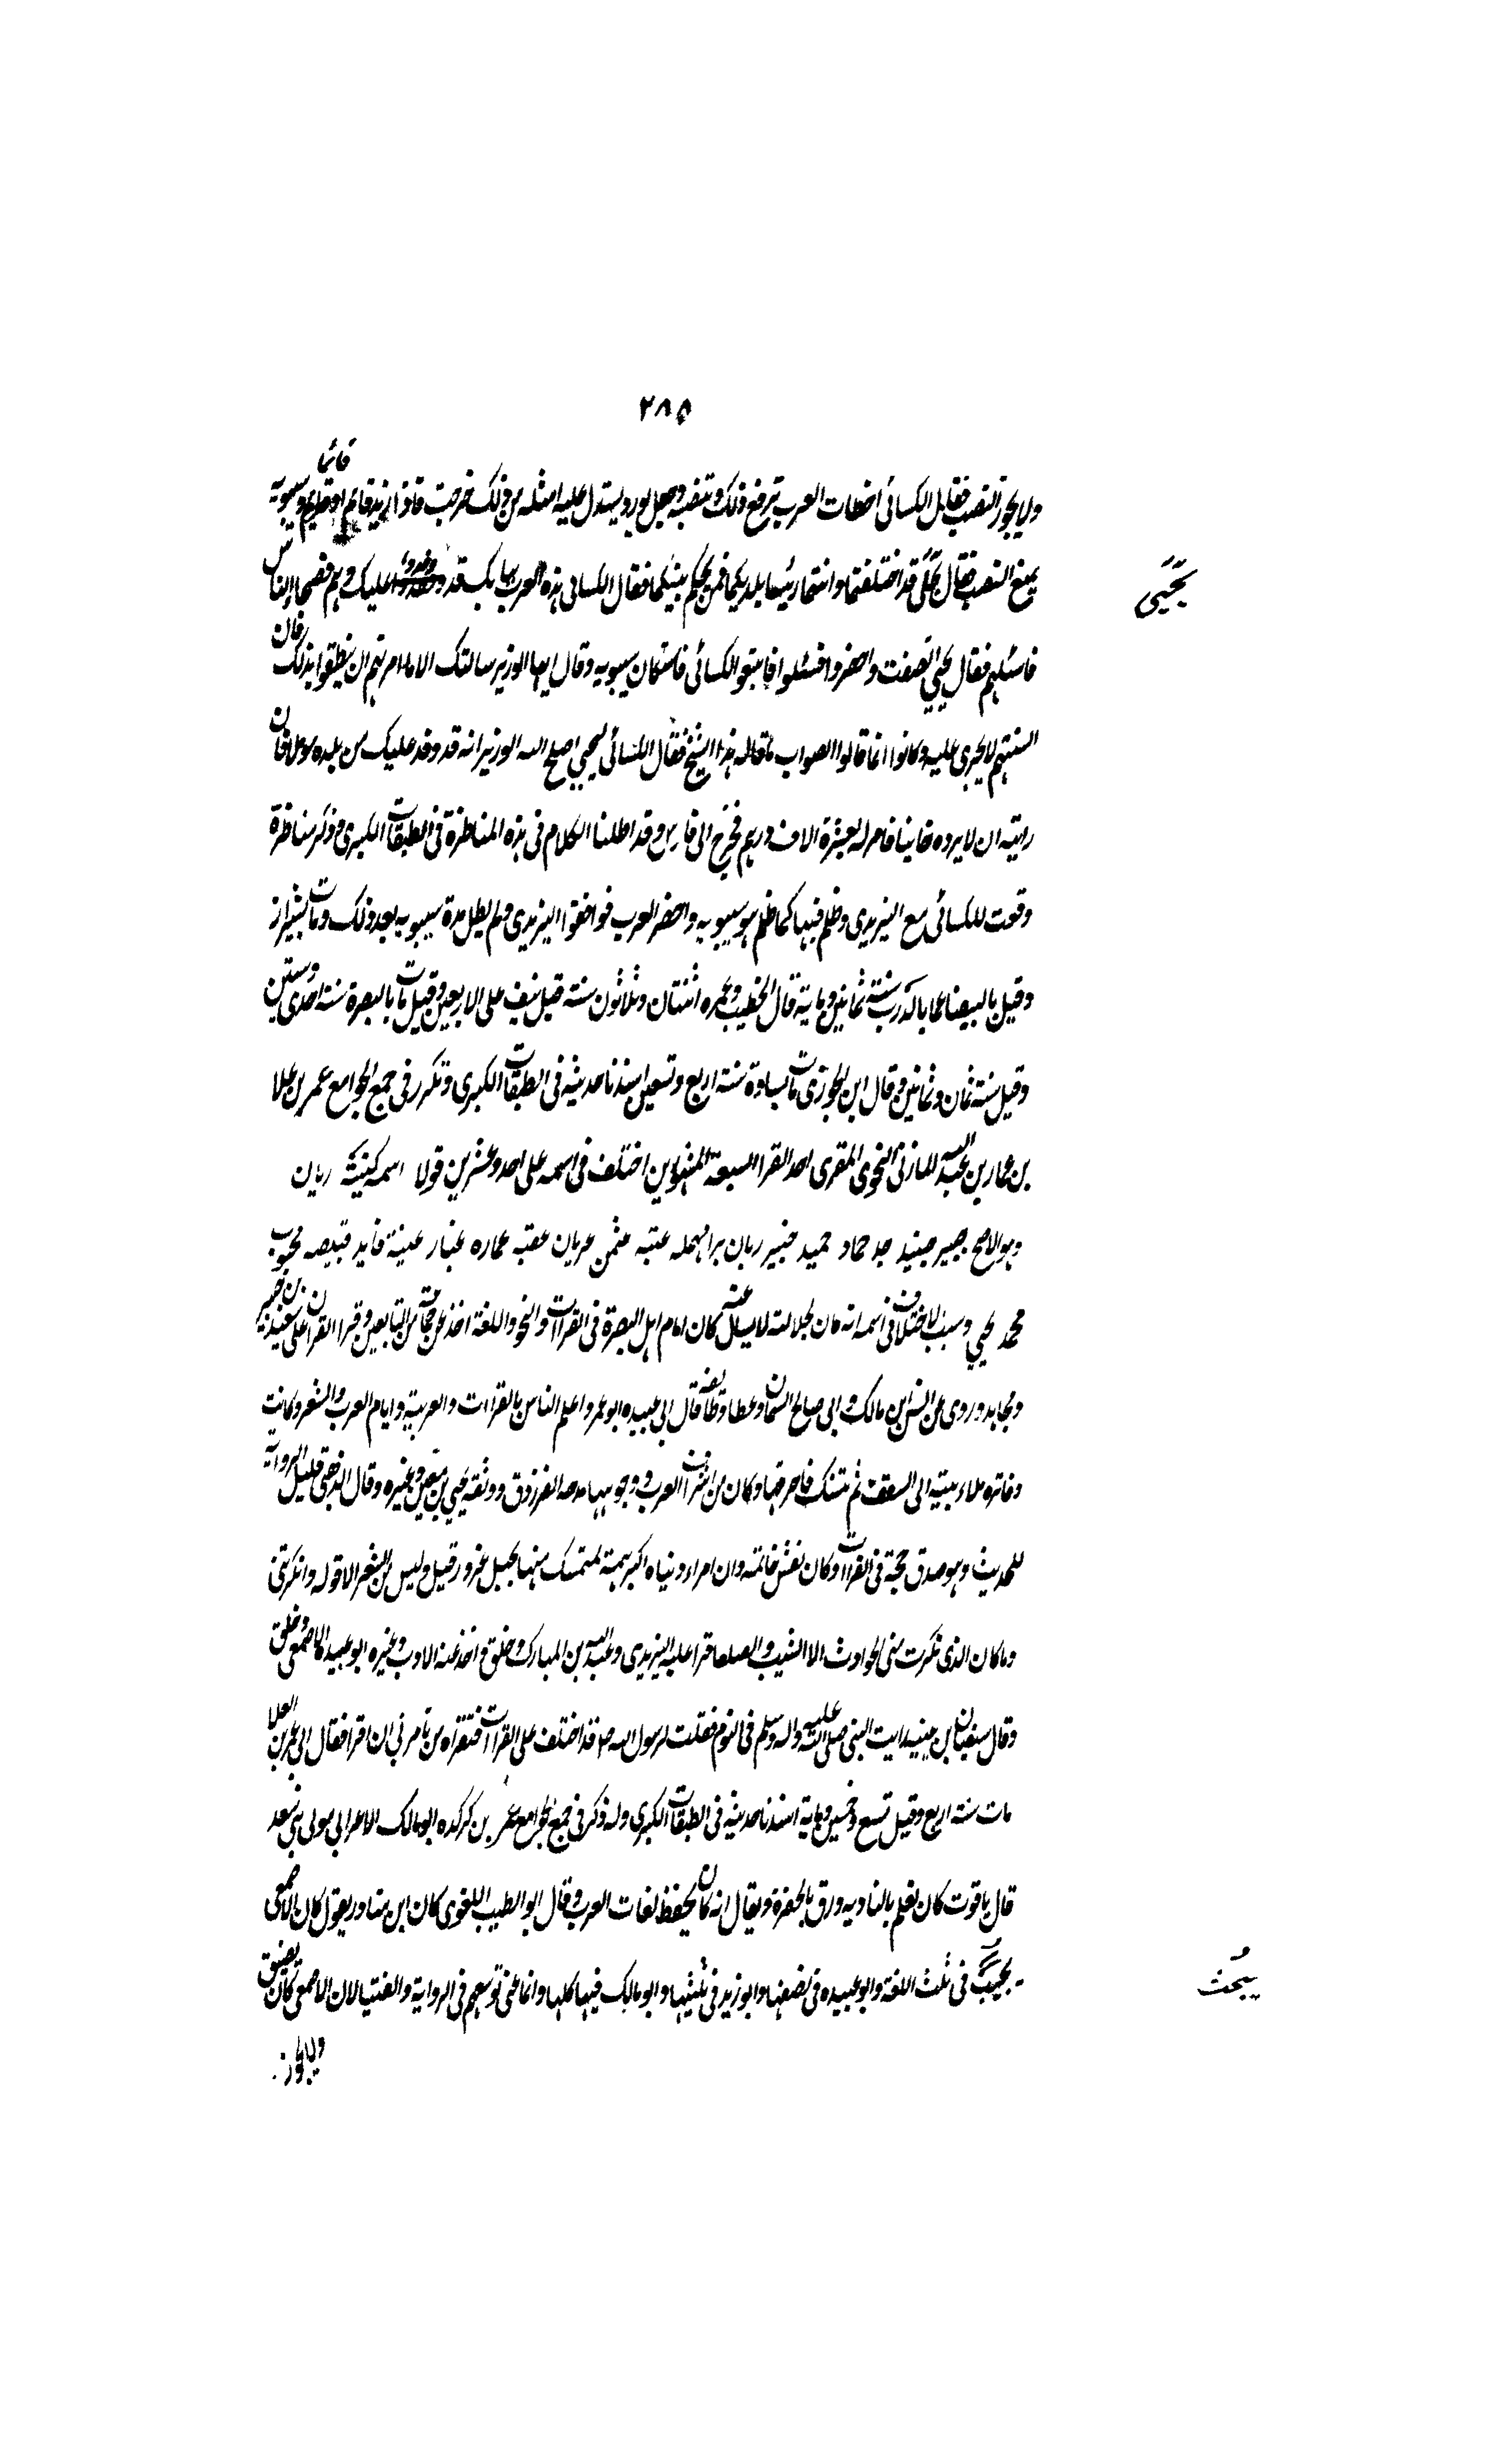 ٢٨٥
قائما
ولا يجوز النصب فقال الكسائى اخطات العرب ترفع ذلك وتنصبه وجعل يورد ويستدل عليه امثله من ذلك خرجت فاذا زيد قائم او وسيبويه
يمنع النصب فقال يحيى قد اختلفتما وانتما رئيسا بلديكما فمن يحكم بينكما فقال الكسائى هذه العرب ببابك قد وفدوا عليك وهم فصحاء الناس
يحيى
فاسئلهم فقال يحيى انصفت واحضروا فسئلوا فاتبعوا الكسائى فاستكان سيبويه وقال ايها الوزير سالتك الا ما امرتهم ان ينطقوا بذلك فان
السنتهم لا يجرى عليه وكانوا انما قالوا الصواب ما قاله هذا الشيخ فقال الكسائى ليحيى اصلح الله الوزير انه قد وفد عليك من بلده موملا فان
رايت ان لا يرده خايبا فامر له بعشرة الاف درهم فخرج الى فارس وقد اطلنا الكلام فى هذه المناظرة فى الطبقات الكبرى وذكر مناظرة
وقعت للكسائى مع اليزيدى وظلم فيها كما ظلم هو سيبويه واحضر العرب فوافقوا اليزيدى ولم يطل مدة سيبويه بعد ذلك ومات بشيراز
وقيل بالبيضا سنة ثمانين ومايه قال الخطيب وعمره اثنتان وثلاثون سنة قيل نيف على الاربعين وقيل مات بالبصرة سنة احدى وستين
وقيل سنة ثمان وثمانين وقال ابن الجوزى مات بساوة سنة اربع وتسعين اسندنا حديثه فى الطبقات الكبرى وتكرر فى جمع الجوامع عمر بن علا
بن عمار بن عبد الله المازنى النحوى المقرى احد القرا السبعة المشهورين اختلف فى اسمه على احد وعشرين قولا اسمه كنيته ربان
وهو الاصح جبير جنيد جد حماد حميد خبير ربان برا مهمله عتبه عثمن عريان عقبه عماره عيار عيينة فايد قبيصه محبوب
محمد يحيى وسبب الاختلاف فى اسمه انه كان لجلالته لا يسال عنه كان امام اهل البصرة فى القراات والنحو واللغة اخذ عن جماعة من التابعين وقرا القران على سعيد بن جبير
ومجاهد وروى عن انس ابن مالك وابى صالح السمان وعطا وطايفة قال ابى عبيده ابو عمرو اعلم الناس بالقراات والعربية وايام العرب والشعر وكانت
دفاتره ملاء بيته الى السقف ثم تنسك فاحرقها وكان من اشراف العرب ووجوهها مدحه الفرزدق ووثقه يحيى بن معين وغيره وقال الذهبى قليل الرواية
للحديث وهو صدق حجة فى القراات وكان نقش خاتمه وان امراء دنياه اكبر همه لمتمسك منها بحبل غرور قيل وليس له من الشعر الا قوله وانكرتنى
وما كان الذى نكرت منى الحوادث الا الشيب والصلعا قرا عليه اليزيدى وعبد الله بن المبارك وخلق واخذ عنه الادب وغيره ابو عبيده والاصمعى وخلق
وقال سفيان بن عيينه رايت النبى صلى الله عليه واله وسلم فى النوم فقلت لرسول الله ص قد اختلف على القراات فبقراه من تامرنى ان اقرا فقال ابى عمر بن العلا
مات سنة اربع وقيل تسع وخمسين وماية اسندنا حديثه فى الطبقات الكبرى وله ذكر فى جمع الجوامع عمر بن كركده ابو مالك الاعرابى مولى بنى سعد
قال ياقوت كان يعلم بالباديه ورق بالحضرة ويقال انه كان يحفظ لغات العرب وقال ابو الطيب اللغوى كان ابن مناذر يقول كان الاصمعى
يجيب فى ثلث اللغة وابو عبيده فى نصفها وابو زيد فى ثلثيها وابو مالك فيها كلها وانما عنى توسعهم فى الرواية والفتيا لان الاصمعى كان يضيق
يبحث
ولا يجوز